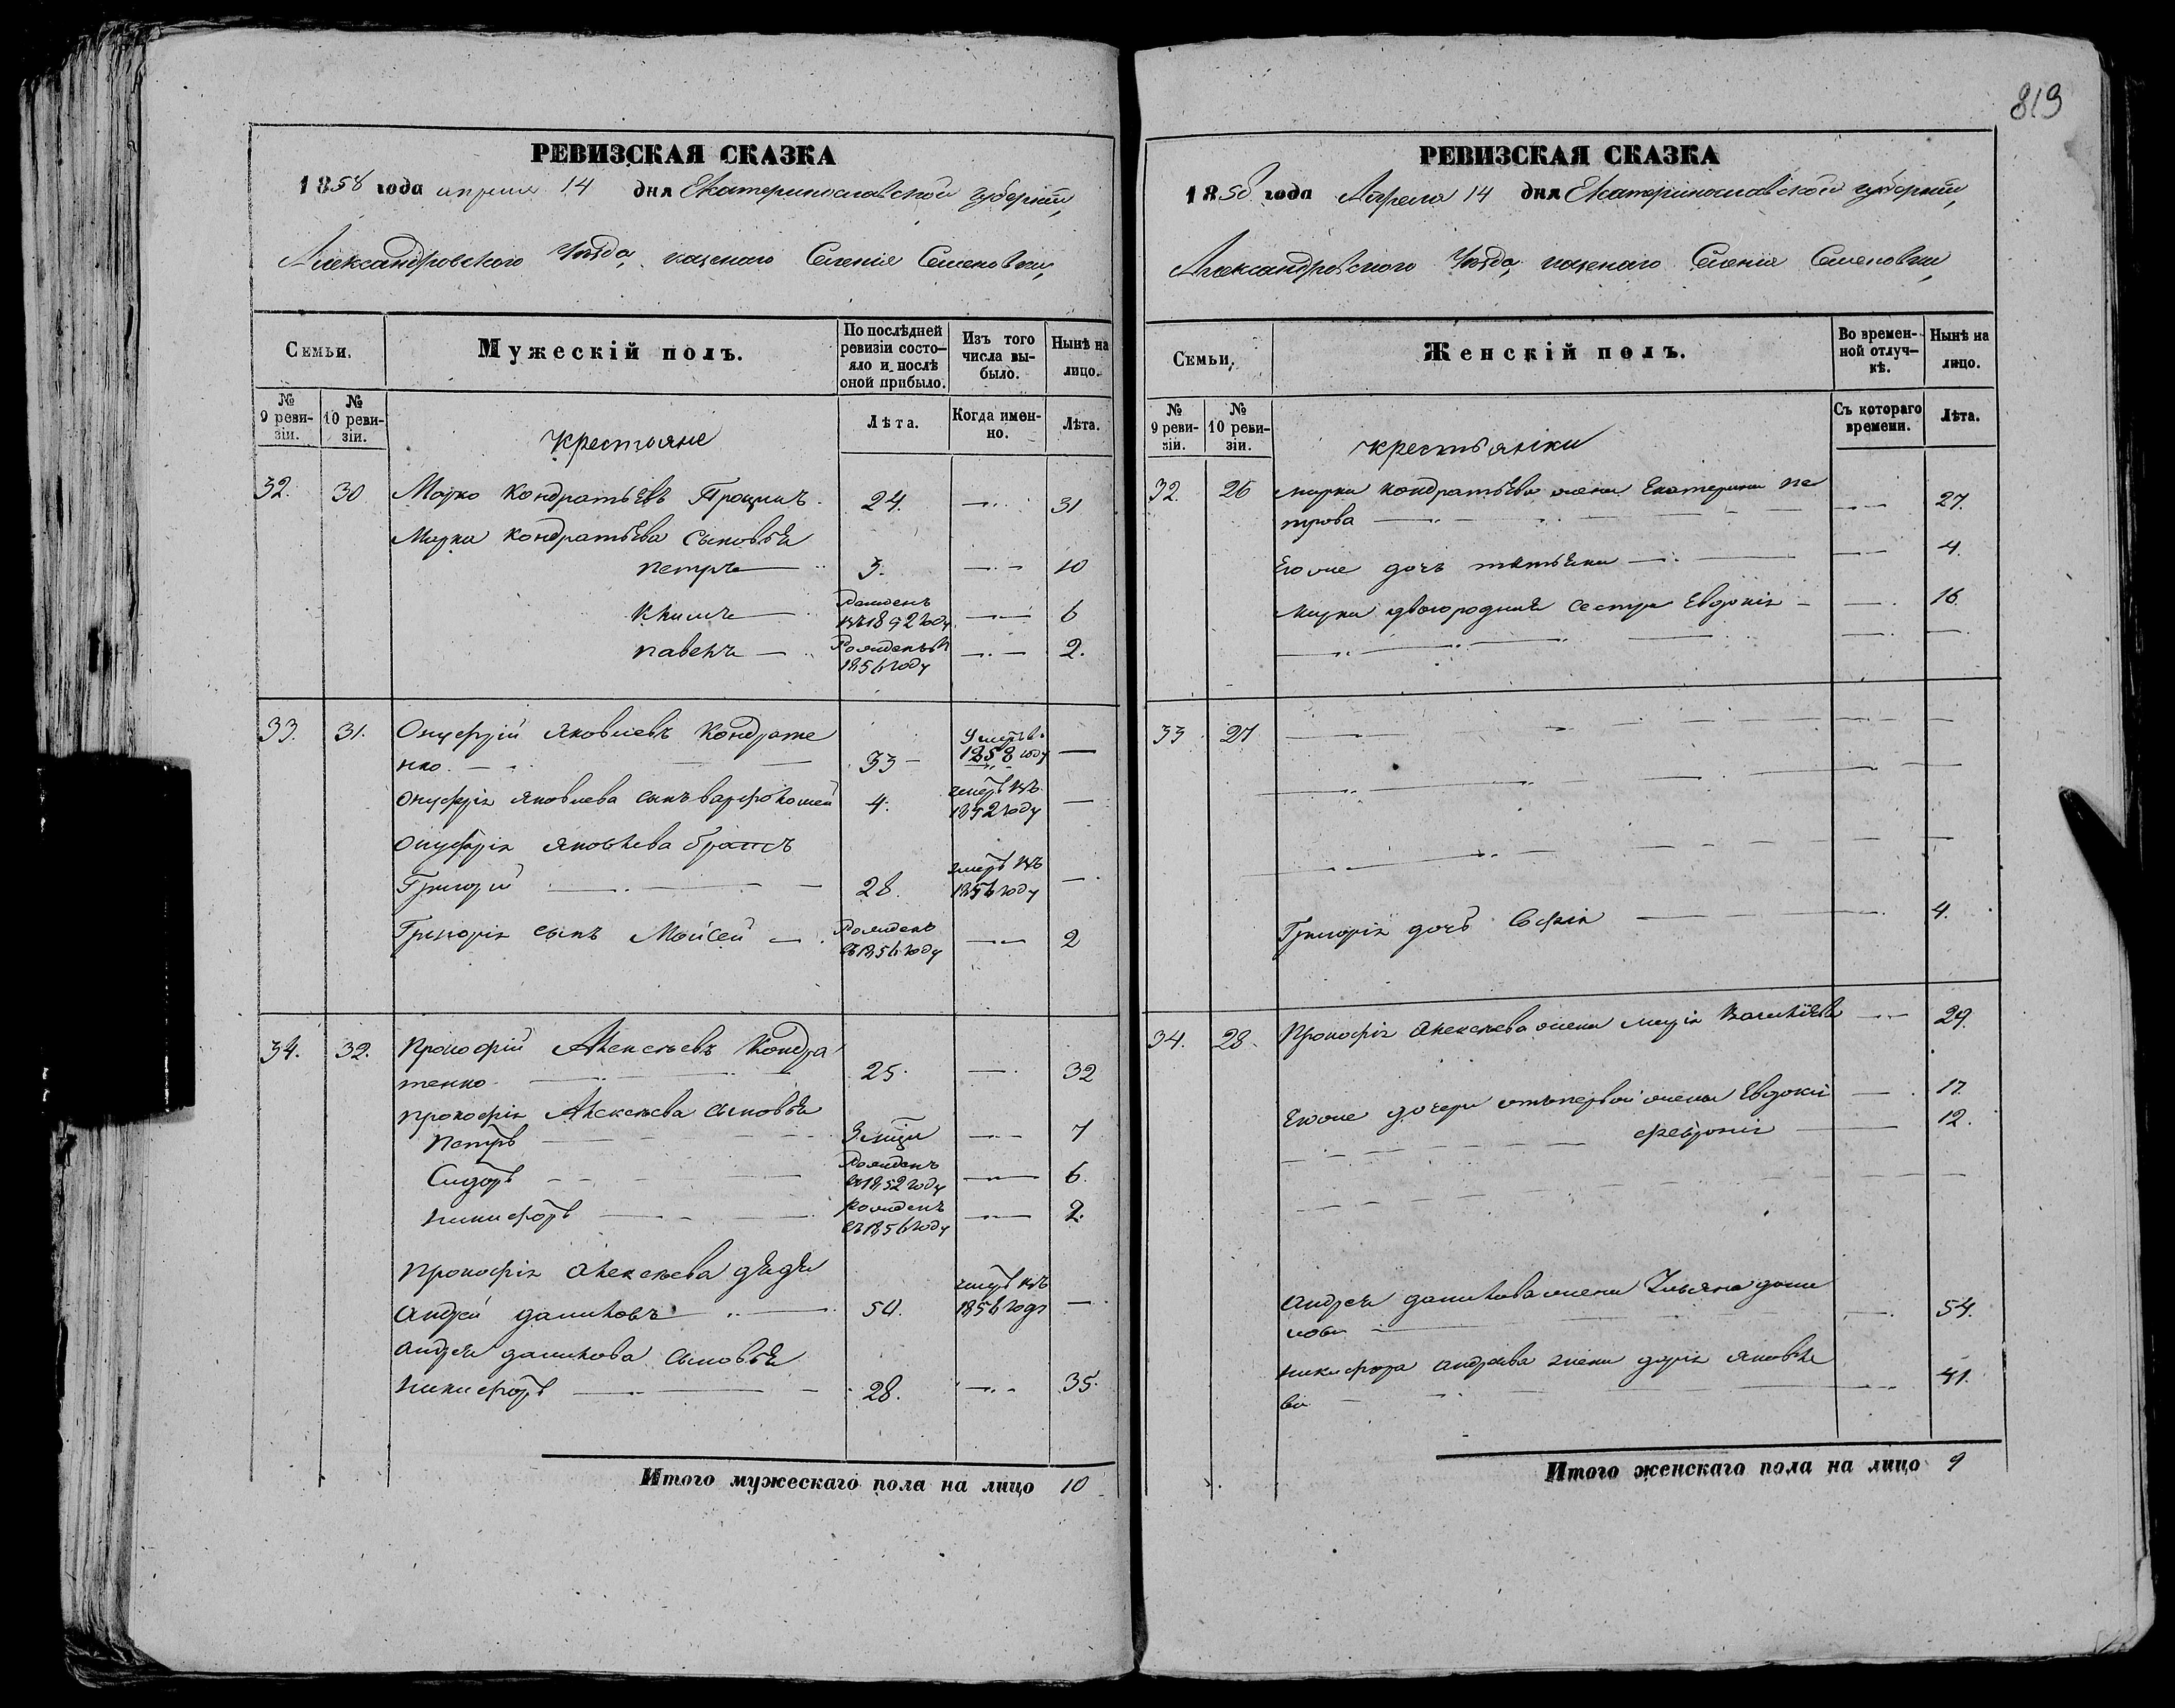 819
РЕВИЗСКАЯ СКАЗКА
1858 года апреля 14 дня Екатеринославской губерніи,
Александровского Уѣзда, казенаго Селенія Семеновки,
Семьи.
Мужескій полъ.
По послѣдней
ревизіи состо-
яло и послѣ
оной прибыло.
Изъ того
числа вы-
было.
Нынѣ на
лицо.
№
9 реви-
зіи.
№
10 реви-
зіи.
крестьяне
Лѣта.
Когда имен-
но.
Лѣта.
32. 30 Марко Кондратьевъ 24. 31
Марка Кондратьева Сыновья
петръ 3. 10
Климъ Рожденъ 6
въ 1852 году
павелъ Рожденъ въ 2.
1856 году
33. 31. Онуфрій Яковлевъ Кондрате Умеръ в
нко. 33 1858 году
Онуфрія Яковлева сынъ варфоломей 4. умеръ въ
1852 году
Онуфрія Яковлева братъ
Григорій 28. умеръ въ
1856 году
Григорія сынъ Мойсей Рожденъ 2
въ 1856 году
34. 32. Прокофій Алексѣевъ Кондра
тенко 25. 32
прокофія Алексѣева сыновья
Петръ 3 7
Сидоръ Рожденъ 6.
въ 1852 году
никифоръ Рожденъ 2.
въ 1856 году
прокофія Алексѣева дядя
Андрей даниловъ 50. умеръ въ
1856 году
Андрея данилова сыновья
никифоръ 28. 35.
Итого мужескаго пола на лицо 10
РЕВИЗСКАЯ СКАЗКА
1858 года Апреля 14 дня Екатеринославской губерніи,
Александровского Уѣзда, казенаго Селенія Семеновки,
Семьи.
Женскій полъ.
Во времен-
ной отлуч-
кѣ.
Нынѣ на
лицо.
№
9 реви-
зіи.
№
10 реви-
зіи.
крестьянки
Съ котораго
времени.
Лѣта.
32. 26 марка кондратьева жена Екатерина пе
трова 27.
Его же дочь татьяна 4.
марка двоюродная сестра Евдокія 16.
33 27
Григорія дочь Софія 4.
34. 28. Прокофія Алексѣева жена марія 29.
Его же дочери отъ первой жены Евдокія 17.
феврония 12.
Андрея данилова жена Ульяна дани
лова 54.
никифора андреева жена дарія яковле
ва 41.
Итого женскаго пола на лицо 9